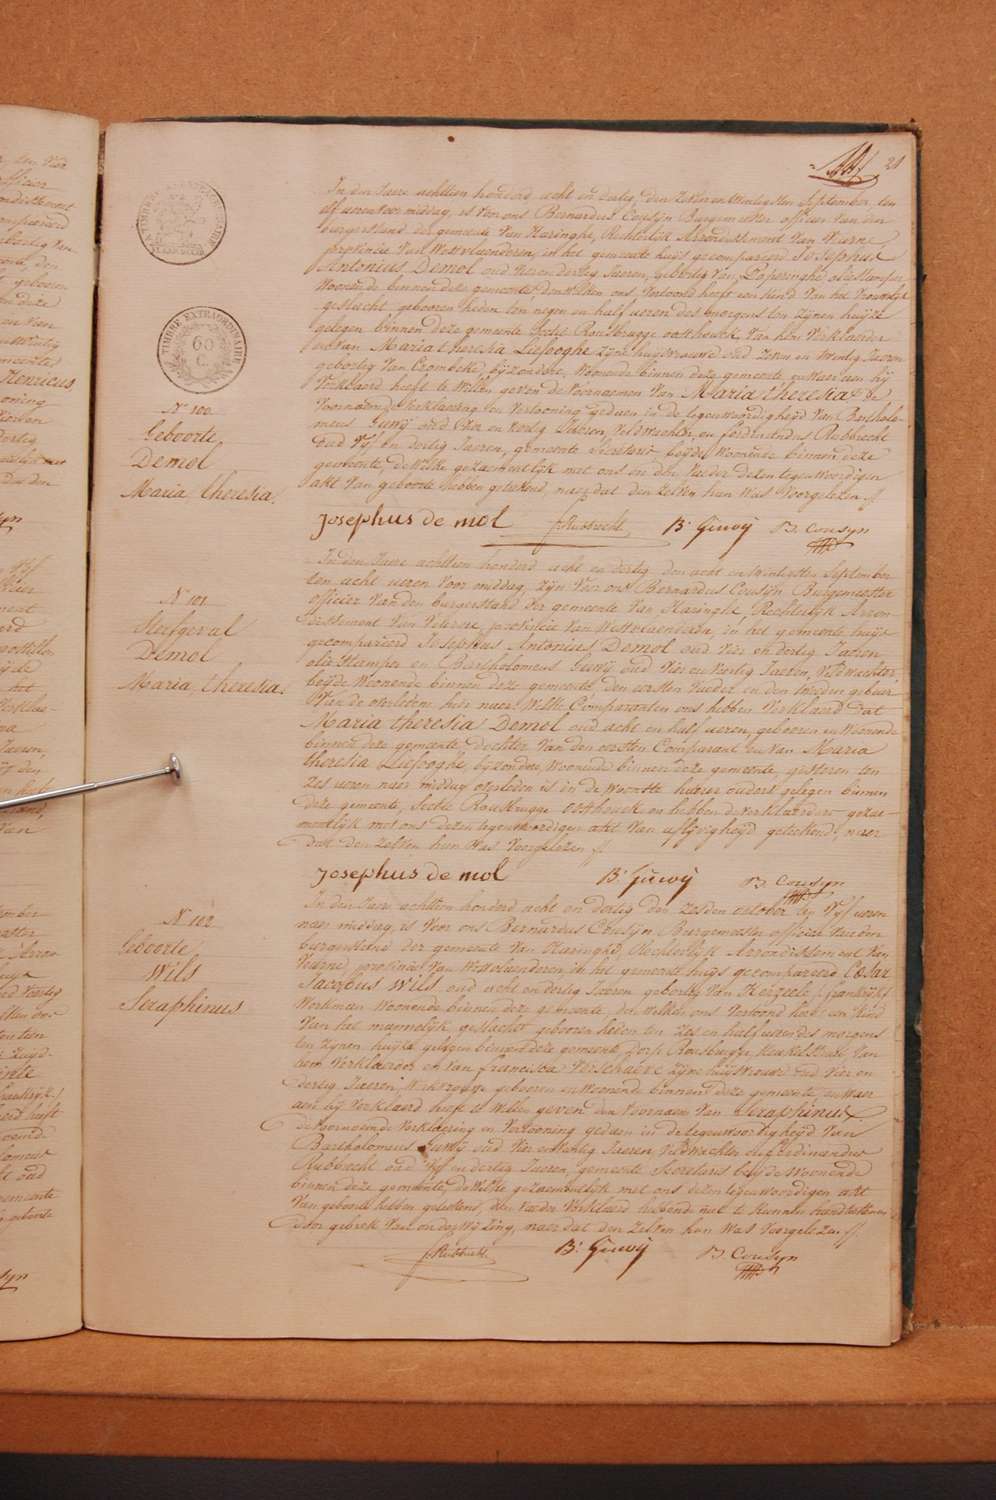 21
TIMBRE EXTRAORDINAIRE
60
C.
In den Jaere achttien honderd acht en dertig, den zeven en twintigsten September ten
elf uren voor middag, is voor ons Bernardus Cousyn Burgemeester officier van den
burgerstand der gemeente van Haringhe, Rechterlijk Arrondissement van Veurne
provintie van Westvlaenderen, in het gemeente huijs gecompareerd Josephus
Antonius Demol oud vier en dertig Jaeren, geboortig van Poperinghe oliestamper,
woonende binnen deze gemeente, denwelken ons vertoond heeft een kind van het vrouwelijk
geslacht, gebooren heden ten negen en half ueren des morgens ten zijnen huijze
gelegen binnen deze gemeente sectie Rousbrugge oosthouck van hem verklaerder
en van Maria theresia Liefooghe zijne huijsvrouwe oud zeven en twintig Jaeren
geboortig van Crombeke, bijzondere, woonende binnen deze gemeente, en waer aen hij
verklaerd heeft te willen geven de voornaemen van Maria theresia, de
voornoemde verklaering en vertooning gedaen in de tegenwoordigheijd van Bartholo-
meus Guwij oud vier en veertig Jaeren, veldwachter, en ferdinandus Rubbrecht
oud vijf en dertig Jaeren, gemeente Secretaris beijde woonende binnen deze
gemeente, de welke gezaementlijk met ons en den vaeder dezen tegenwoordigen
akt van geboorte hebben geteekend, naer dat den zelven hun was voorgelezen //
N° 100
Geboorte
Demol
Maria theresia.
Josephus de mol f. Rubbrecht B: Guwij B. Cousyn
In den Jaere achttien honderd acht en dertig den acht en twintigsten September
ten acht ueren voor middag, zijn voor ons Bernardus Cousijn Burgemeester
officier van den burgerstand der gemeente van Haringhe, Rechterlijk Arron-
dissement van Veurne, provintie van Westvlaenderen, in het gemeente huijs
gecompareerd Josephus Antonius Demol oud vier en dertig Jaeren
olie stamper en Bartholomeus Guwij oud vier en veertig Jaeren, veldwachter
beijde woonende binnen deze gemeente, den eersten vaeder en den tweeden gebeur
van de overledene hier naer, welke Comparanten ons hebben verklaerd dat
Maria theresia Demol oud acht en half ueren, gebooren en woonende
binnen deze gemeente, dochter van den eersten Comparant en van Maria
theresia Liefooghe, bijzondere, woonende binnen deze gemeente, gisteren ten
zes ueren naer middag overleden is in de woonste haerer ouders gelegen binnen
deze gemeente, Sectie Rousbrugge oosthouck en hebben de verklaerders gezae-
mentlijk met ons dezen tegenwoordigen akt van aflijvigheijd geteekend, naer
dat den zelven hun was voorgelezen //
N° 101
Sterfgeval
Demol
Maria theresia.
Josephus de mol B: Guwij B. Cousyn
In den Jaere achttien honderd acht en dertig den zesden october ten vijf ueren
naer middag, is voor ons Bernardus Cousijn Burgemeester officier van den
burgerstand der gemeente van Haringhe, Rechterlijk Arrondissement van
Veurne, provintie van Westvlaenderen, in het gemeente huijs gecompareerd Cesar
Jacobus Wils oud acht en dertig Jaeren geboortig van Herzeele (frankrijk)
Werkman woonende binnen deze gemeente, den welken ons vertoond heeft een kind
van het mannelijk geslacht gebooren heden ten zes en half ueren des morgens
ten zijnen huijze gelegen binnen deze gemeente dorp Rousbrugge, Keukelstraet van
hem verklaerder en van francisca Verschaeve zijne huijsvrouwe oud vier en
dertig Jaeren, werkvrouwe gebooren en woonende binnen deze gemeente en waer
aen hij verklaerd heeft te willen geven den voornaem van Seraphinus
de voornoemde verklaering en vertooning gedaen in de tegenwoordigheijd van
Bartholomeus Guwij oud vier en veertig Jaeren veldwachter en ferdinandus
Rubbrecht oud vijf en dertig Jaeren, gemeente Secretaris beijde woonende
binnen deze gemeente, de welke gezaementlijk met ons dezen tegenwoordigen akt
van geboorte hebben geteekend, den vaeder verklaerd hebbende niet te kunnen handteekenen
door gebrek van onderwijzing, naer dat den zelven hun was voorgelezen //
N° 102
Geboorte
Wils
Seraphinus
f. Rubbrecht B: Guwij B. Cousyn